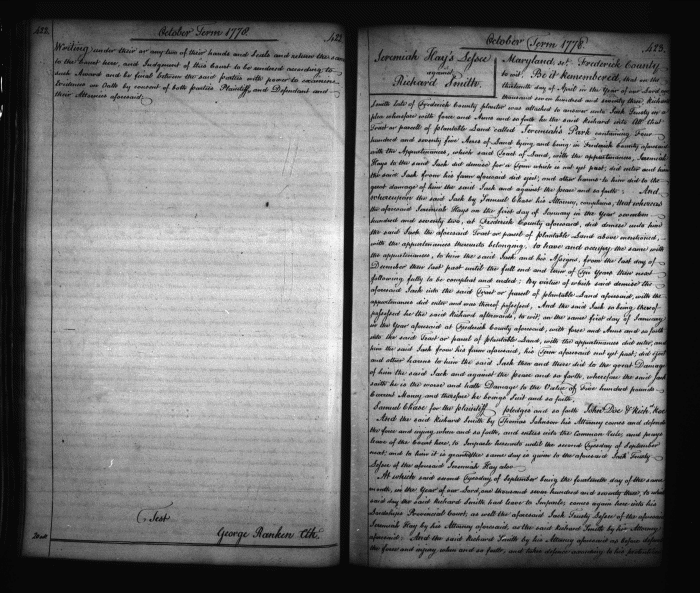 422.
October Term 1778.
422
Writing under their or any two of their hands and Seals and return the same
to the Court here, and Judgment of this Court to be rendered according to
such Award and be final between the said parties with power to examine
Evidence on Oath by consent of both parties Plaintiff, and Defendant and
their Attornies aforesaid
Test
George Ranken Clk.
October Term 1778.
423.
Jeremiah Hay's Lessee
against
Richard Smith.
Maryland, sct. Frederick County
to wit. Be it Remembered, that on the
thirteenth day of April in the Year of our Lord one
thousand seven hundred and seventy three Richard
Smith late of Frederick County planter was attached to answer unto Jack Trusty in a
plea wherefore with force and Arms and so forth he the said Richard into All that
Tract or parcel of plantable Land called Jeremiah's Park containing Four
hundred and seventy five Acres of Land lying and being in Frederick County aforesaid
with the Appurtenances, which said Tract of Land, with the appurtenances, Jeremiah
Hays to the said Jack did demise for a Term which is not yet past, did enter and him
the said Jack from his farm aforesaid did eject, and other harms to him did to the
great damage of him the said Jack and against the peace and so forth; And
whereupon the said Jack by Samuel Chase his Attorney, complains, that whereas
the aforesaid Jeremiah Hays on the first day of January in the Year seventeen
hundred and seventy two, at Frederick County aforesaid, did demise unto him
the said Jack the aforesaid Tract or parcel of plantable Land above mentioned,
with the appurtenances thereunto belonging; to have and occupy the same with
the appurtenances, to him the said Jack and his Assigns, from the last day of
December then last past until the full end and term of Ten Years then next
following fully to be compleat and ended; By virtue of which said demise the
aforesaid Jack into the said Tract or parcel of plantable Land aforesaid, with the
appurtenances did enter and was thereof possessed, And the said Jack so being thereof
possessed he the said Richard afterwards, to wit, on the same first day of January
in the Year aforesaid at Frederick County aforesaid, with force and Arms and so forth
into the said Tract or parcel of plantable Land, with the appurtenances did enter, and
him the said Jack from his farm aforesaid, his Term aforesaid not yet past, did eject
and other harms to him the said Jack then and there did to the great Damage
of him the said Jack and against the peace and so forth, wherefore the said Jack
saith he is the worse and hath Damage to the Value of Five hundred pounds
Current Money and therefore he brings Suit and so forth.
Samuel Chase for the plaintiff pledges and so forth John Doe & Richd. Roe
And the said Richard Smith by Thomas Johnson his Attorney comes and defends
the force and injury when and so forth, and enters into the Common Rule, and prays
leave of the Court here, to Imparle hereunto until the second Tuesday of September
next; and to him it is granted the same day is given to the aforesaid Jack Trusty
Lessee of the aforesaid Jeremiah Hay also
At which said second Tuesday of September being the fourteenth day of the same
month, in the Year of our Lord, one thousand seven hundred and seventy three, to which
said day the said Richard Smith had leave to Imparle; comes again here into his
Lordships Provincial Court, as well the aforesaid Jack Trusty Lessee of the aforesaid
Jeremiah Hay by his Attorney aforesaid, as the said Richard Smith by his Attorney
aforesaid; And the said Richard Smith by his Attorney aforesaid as before defends
the force and injury when and so forth, and takes defence according to his